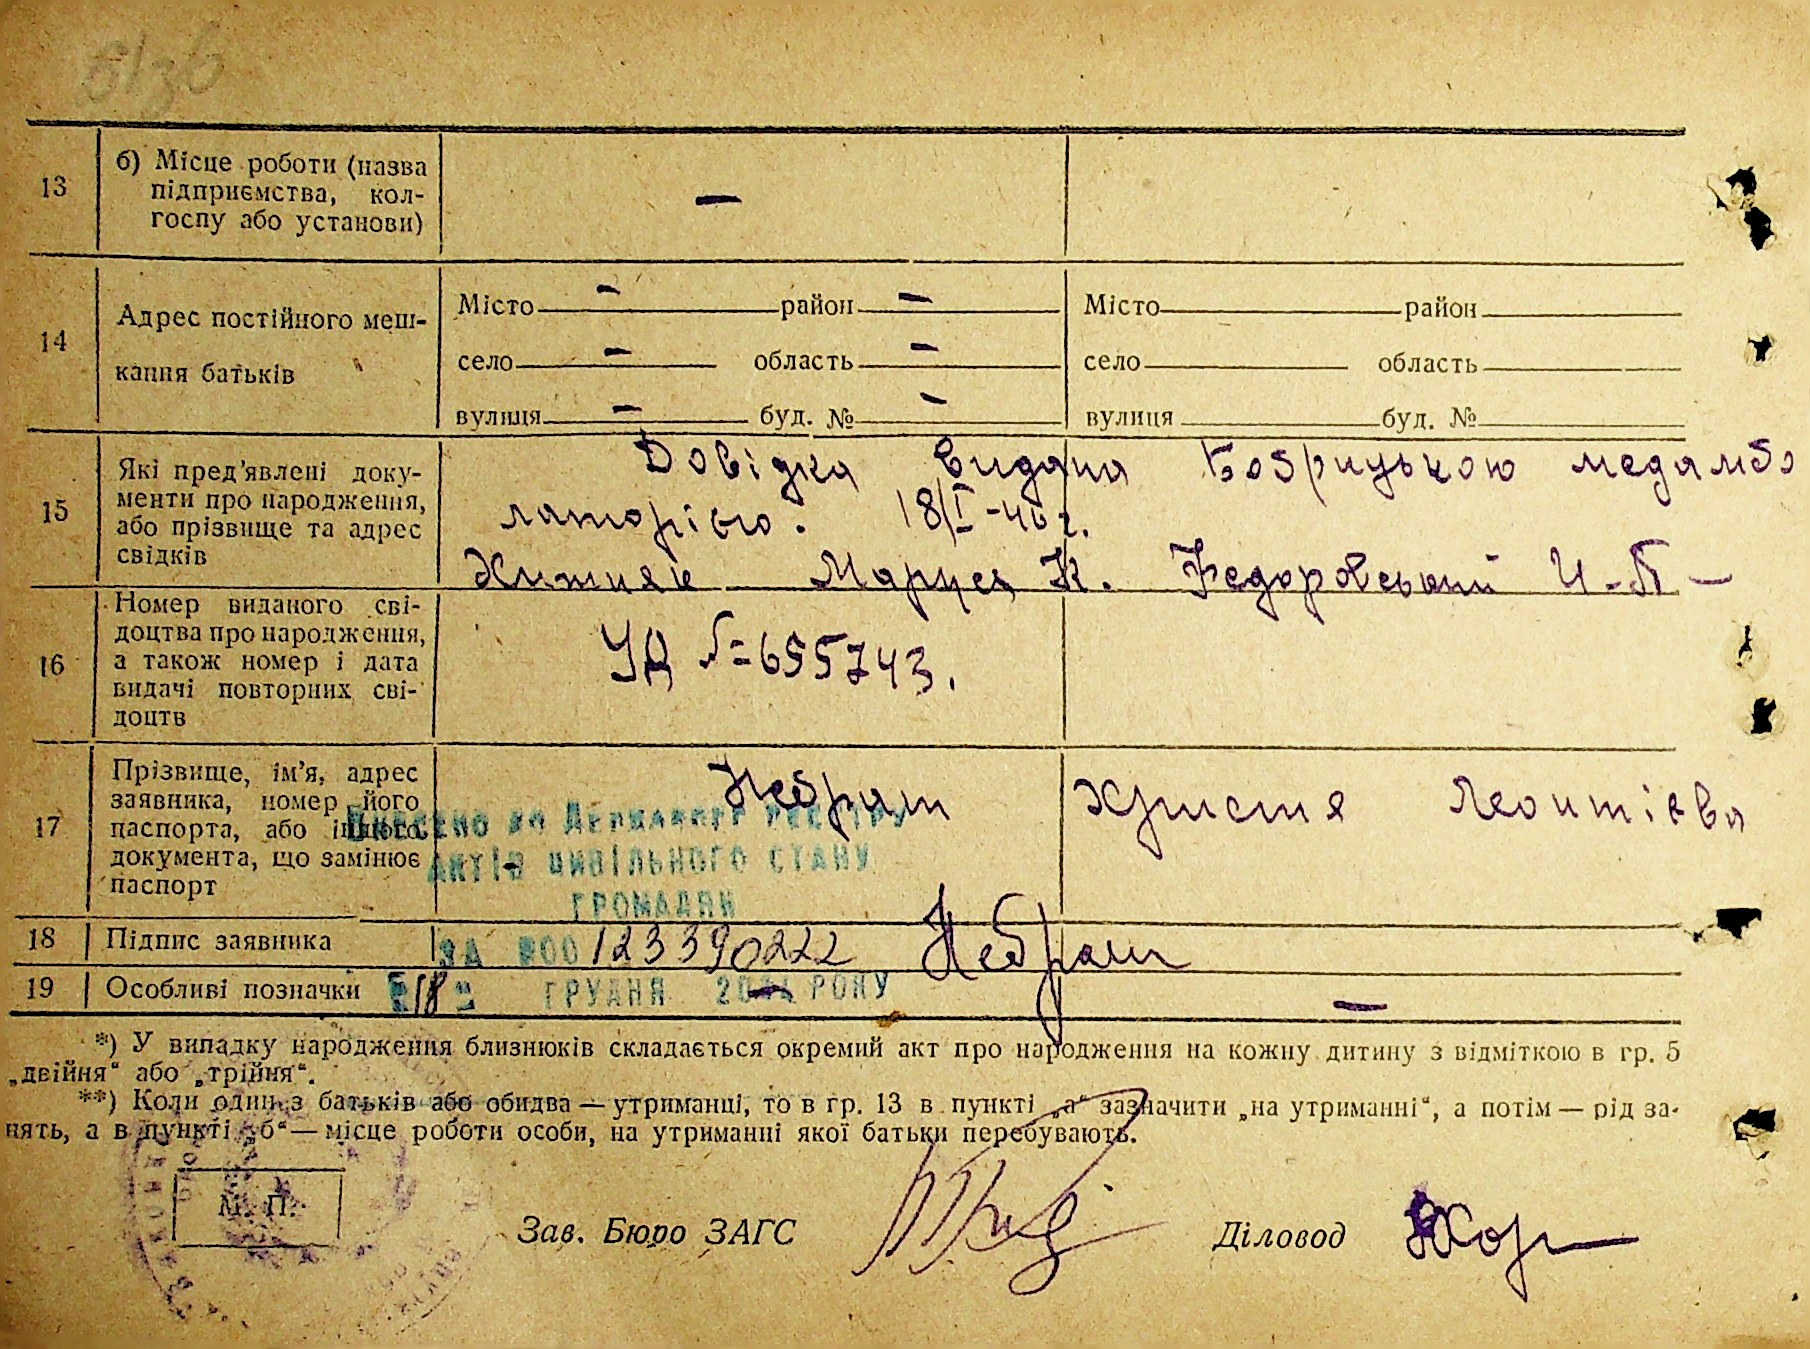 13 б) Місце роботи (назва
підприємства, кол-
госпу або установи) —
14 Адрес постійного меш-
кання батьків
Місто — район — Місто район
село — область — село область
вулиця — буд. № — вулиця буд. №
15 Які пред'явлені доку-
менти про народження,
або прізвище та адрес
свідків
Довідка видана Бобрицькою медамбо
латорією. 18/I-46 г.
Хижняк Маруся К. Федоровський И-П —
16 Номер виданого сві-
доцтва про народження,
а також номер і дата
видачі повторних сві-
доцтв
УД №=655743.
17 Прізвище, ім'я, адрес
заявника, номер його
паспорта, або іншого
документа, що замінює
паспорт
Небрат Христя Леонтієва
Внесено до Державного реєстру
актів цивільного стану
громадян
18 Підпис заявника за №00123390222 Небрат
19 Особливі позначки "18" грудня РОКУ —
*) У випадку народження близнюків складається окремий акт про народження на кожну дитину з відміткою в гр. 5
„двійня“ або „трійня“.
**) Коли один з батьків або обидва — утриманці, то в гр. 13 в пункті „а“ зазначити „на утриманні“, а потім — рід за-
нять, а в пункті „б“ — місце роботи особи, на утриманні якої батьки перебувають.
М. П.
Зав. Бюро ЗАГС Діловод